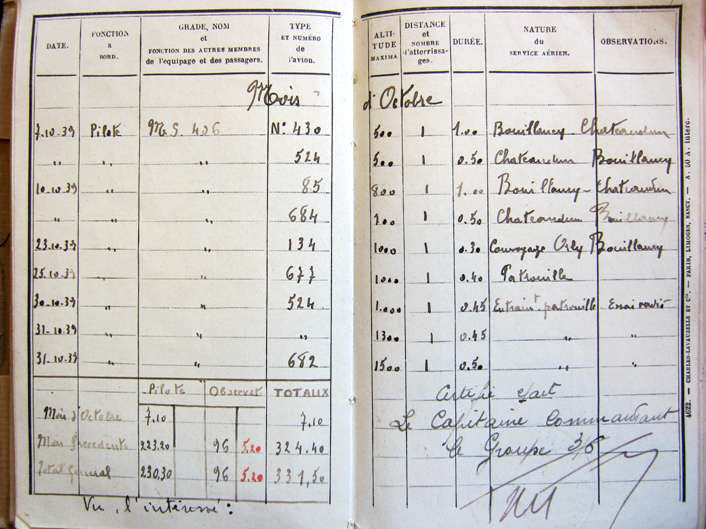 DATE. FONCTION à BORD. GRADE, NOM et FONCTION DES AUTRES MEMBRES de l'equipage et des passagers. TYPE ET NUMÉRO de l'avion.
Mois
7.10.39 Pilote M.S. 406 N° 430
" " " 524
10.10.39 " " 85
" " " 684
23.10.39 " " 134
25.10.39 " " 677
30.10.39 " " 524
31-10.39 " " "
31.10.39 " " 682
Pilote Observat TOTAUX
Mois d'Octobre 7,10 7,10
Mois Précedents 223.20 96 5.20 324.40
Total General 230,30 96 5.20 331,50
Vu, l'intéressé :
ALTITUDE MAXIMA DISTANCE et NOMBRE d'atterrissages. DURÉE. NATURE du SERVICE AÉRIEN. OBSERVATIONS.
d'Octobre
500 1 1.00 Bouillancy - Chateaudun
500 1 0.50 Chateaudun Bouillancy
800 1 1.00 Bouillancy - Chateaudun
1 0.50 Chateaudun Bouillancy
1000 1 0.30 Convoyage Orly Bouillancy
1000 1 0.40 Patrouille
1.000 1 0.45 Entraint patrouille Essai radio
1300 1 0.45 " "
1500 1 0.50 " "
Certifié exact
Le Capitaine Commandant
le Groupe 3/6
4022. — CHARLES-LAVAUZELLE ET Cie. — PARIS, LIMOGES, NANCY. —